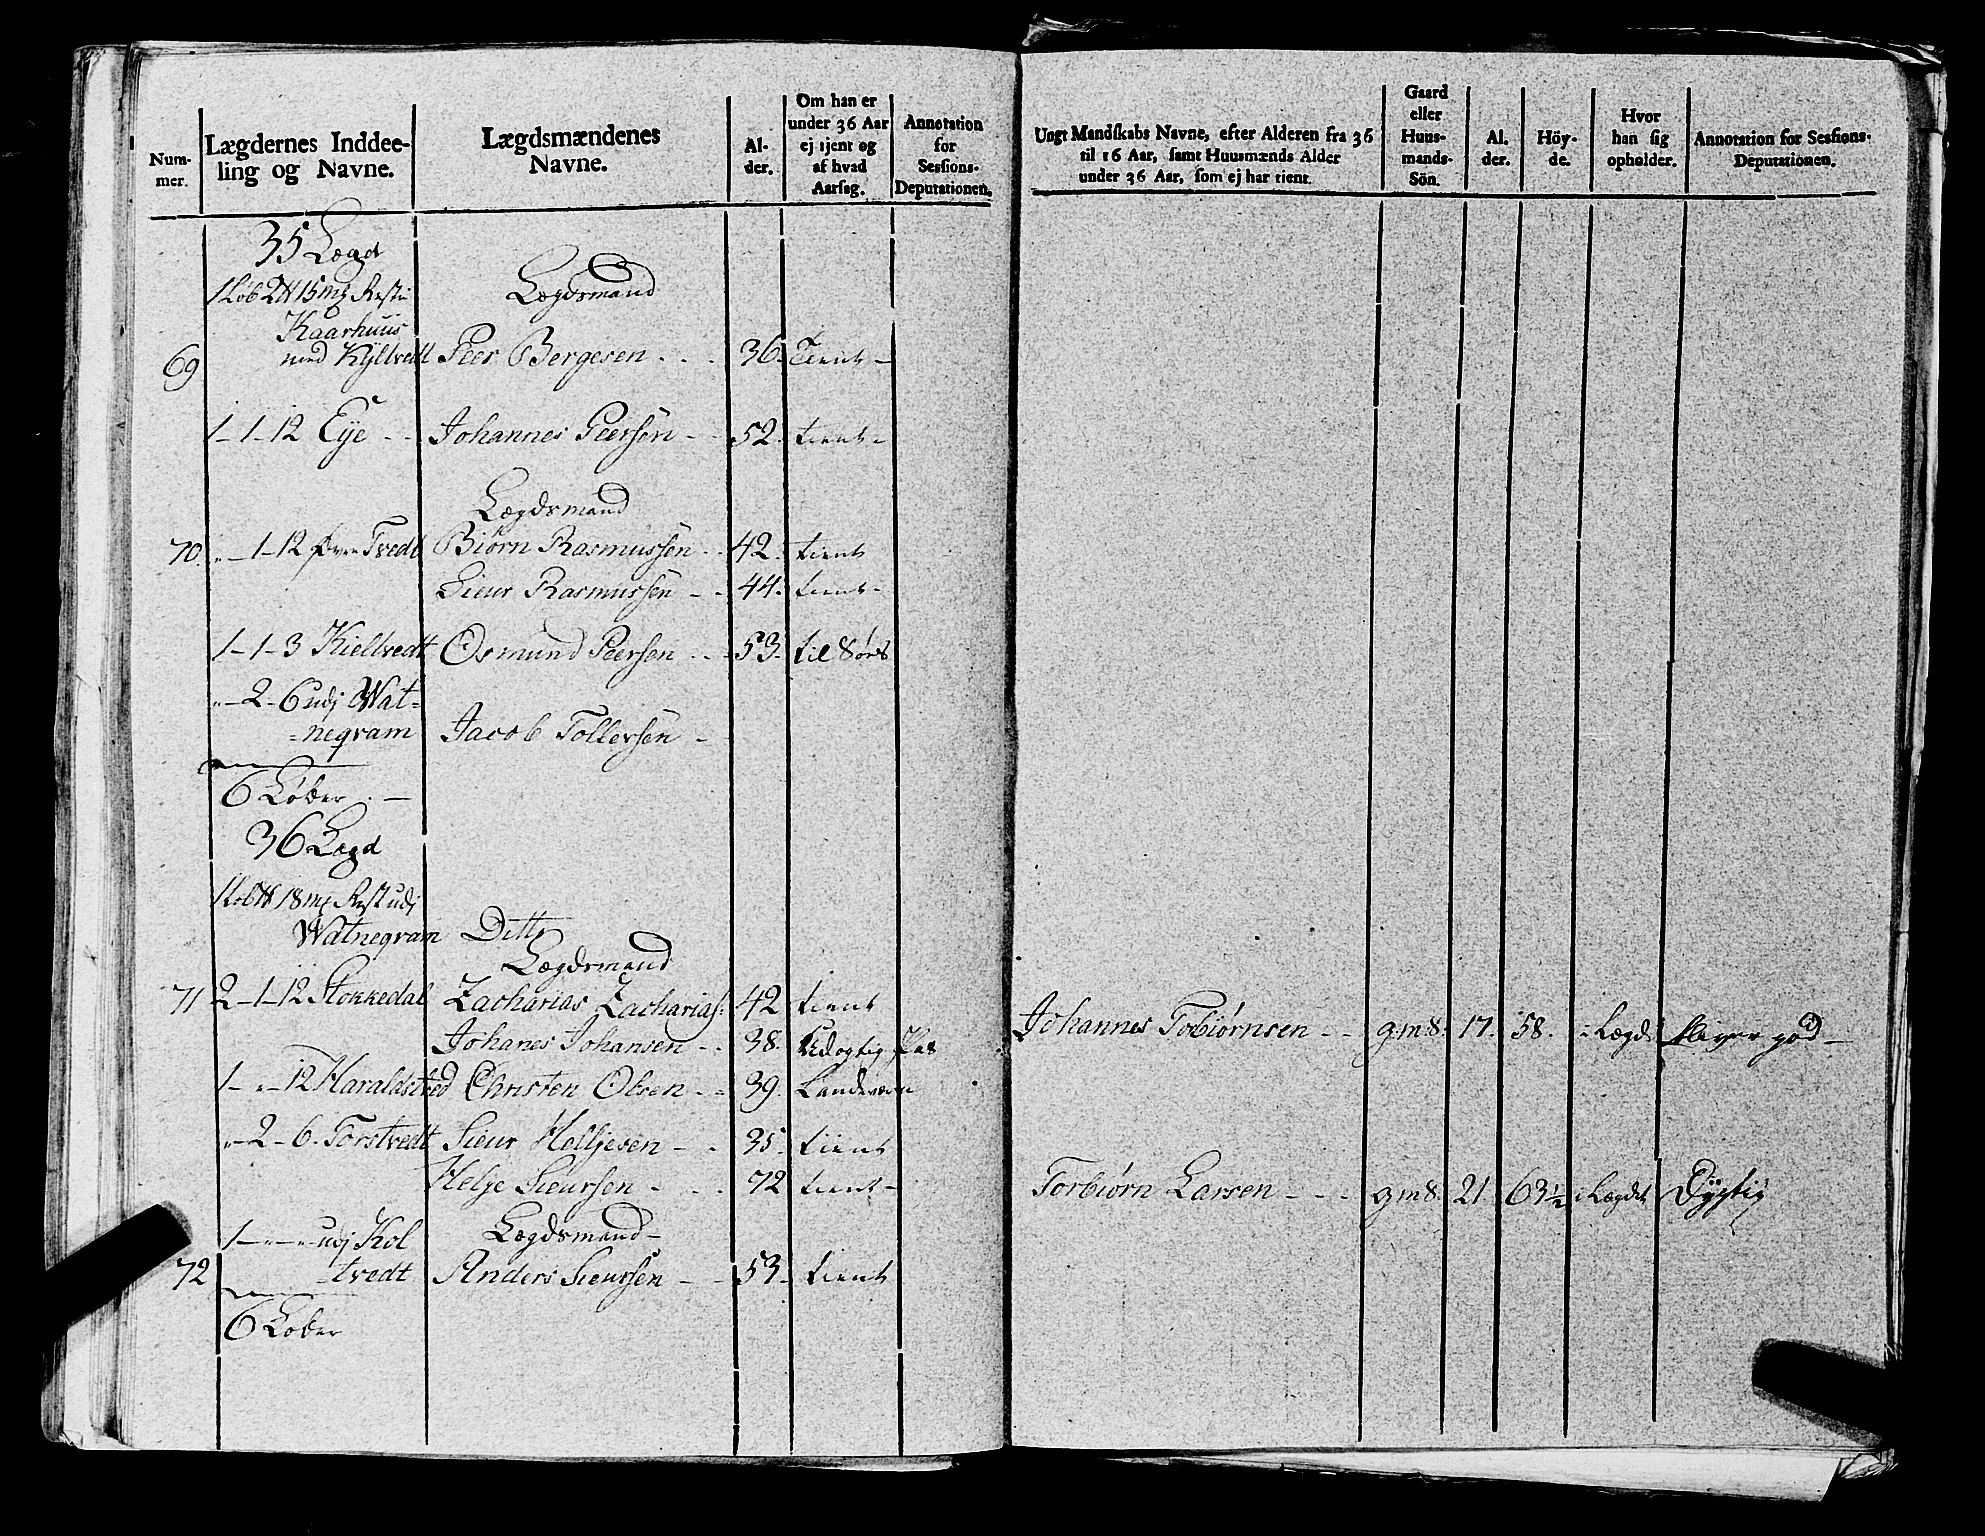 Num-
mer.
Lægdernes Inddee-
ling og Navne.
Lægdsmændenes
Navne.
Al-
der.
Om han er
under 36 Aar
ej tjent og
af hvad
Aarsag.
Annotation
for
Sessions-
Deputationen.
35 Lægd
1 Løb 2 15 mg Rest i
Kaarhuus
Lægdsmand
69 med Kyltvedt Peer Bergesen 36. Tient
1-1-12 Eye Johannes Peersen 52. tient
Lægdsmand
70. „-1-12 Øvre Tvedt Biørn Rasmussen 42. tient
Sieur Rasmussen 44. tient
1-1-3 Kieltvedt Osmund Peersen 53. til Søes
„-2-6 udj Wat=
=negram Jacob Tollersen
6 Løber
36 Lægd
1 Løb 18 mg Rest udj
Watnegram Ditto
Lægdsmand
71 2-1-12 Stokkedal Zacharias Zacharias: 42 tient
Johanes Johansen 38. Udogtig Pas
1-„-12 Haraldstved Christen Olsen 39. Landeværn
„-2-6. Torstvedt Sieur Helljesen 35. tiient
Helje Sieursen 72 tient
1-„-„- udj Kol Lægdsmand
72 =tvedt Anders Sieursen 53. tient
6 Løber
Ungt Mandskabs Navne, efter Alderen fra 36
til 16 Aar, samt Huusmænds Alder
under 36 Aar, som ej har tient.
Gaard
eller
Huus-
mands-
Sön.
Al.
der.
Höy-
de.
Hvor
han sig
opholder.
Annotation for Sessions-
Deputationen.
Johannes Tobiørnsen g.m:s: 17. 58. i Lægd: bliver god
Torbiørn Larsen g m s: 21 63 1/2 i Lægdet Dygtig